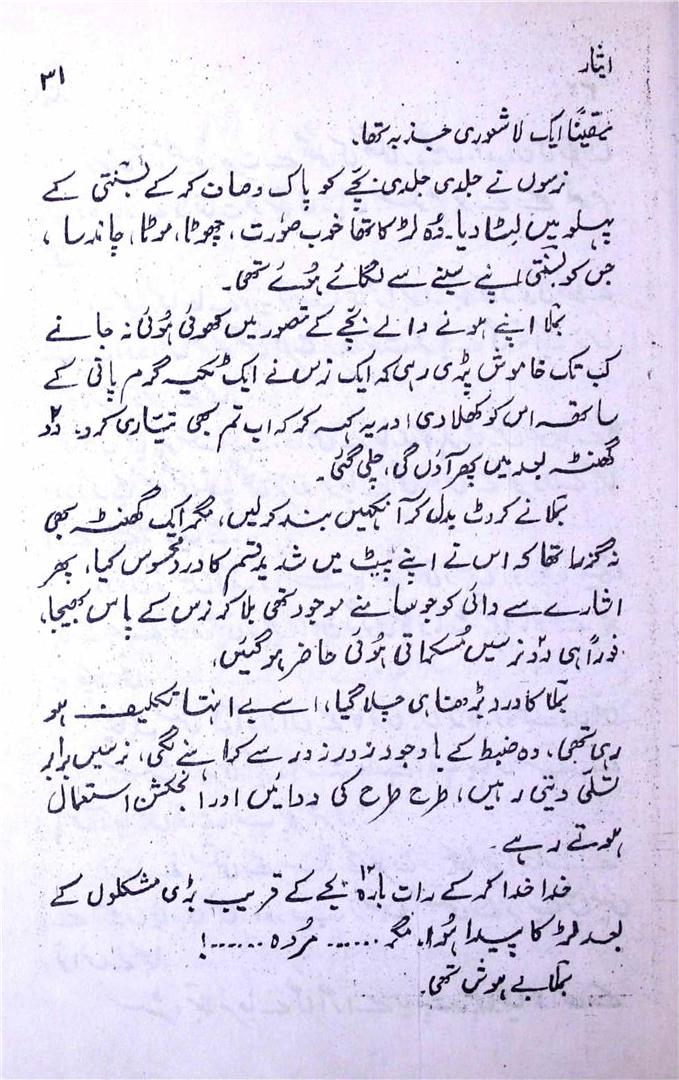 ایثار
۳۱
یقیناً ایک لاشعوری جذبہ تھا۔
نرسوں نے جلدی جلدی بچّے کو پاک و صاف کر کے بسنتی کے
پہلو میں لِٹا دیا۔ وُہ لڑکا تھا خوب صورت، چھوٹا، موٹا، چاند سا،
جس کو بسنتی اپنے سینے سے لگائے ہُوئے تھی۔
بملا اپنے ہونے والے بچّے کے تصور میں کھوئی ہُوئی نہ جانے
کب تک خاموش پڑی رہی کہ ایک نرس نے ایک ٹکیہ گرم پانی کے
ساتھ اس کو کھلا دی اور یہ کہہ کر کہ اب تم بھی تیّاری کرو۔ دو
گھنٹہ بعد میں پھر آؤں گی، چلی گئی۔
بملا نے کروٹ بدل کر آنکھیں بند کر لیں، مگر ایک گھنٹہ بھی
نہ گزرا تھا کہ اس نے اپنے پیٹ میں شدید قسم کا درد محسوس کیا، پھر
اشارے سے دائی کو جو سامنے موجود تھی بلا کر نرس کے پاس بھیجا،
فوراً ہی دو نرسیں مُسکراتی ہوئی حاضر ہو گئیں،
بملا کا درد بڑھتا ہی چلا گیا، اسے بے انتہا تکلیف ہو
رہی تھی، وہ ضبط کے باوجود زور زور سے کراہنے لگی، نرسیں برابر
تسلّی دیتی رہیں، طرح طرح کی دوائیں اور انجکشن استعمال
ہوتے رہے۔
خدا خدا کر کے رات بارہ ۱۲ بجے کے قریب بڑی مشکلوں کے
بعد لڑکا پیدا ہُوا، مگر ...... مُردہ ......!
بملا بے ہوش تھی۔